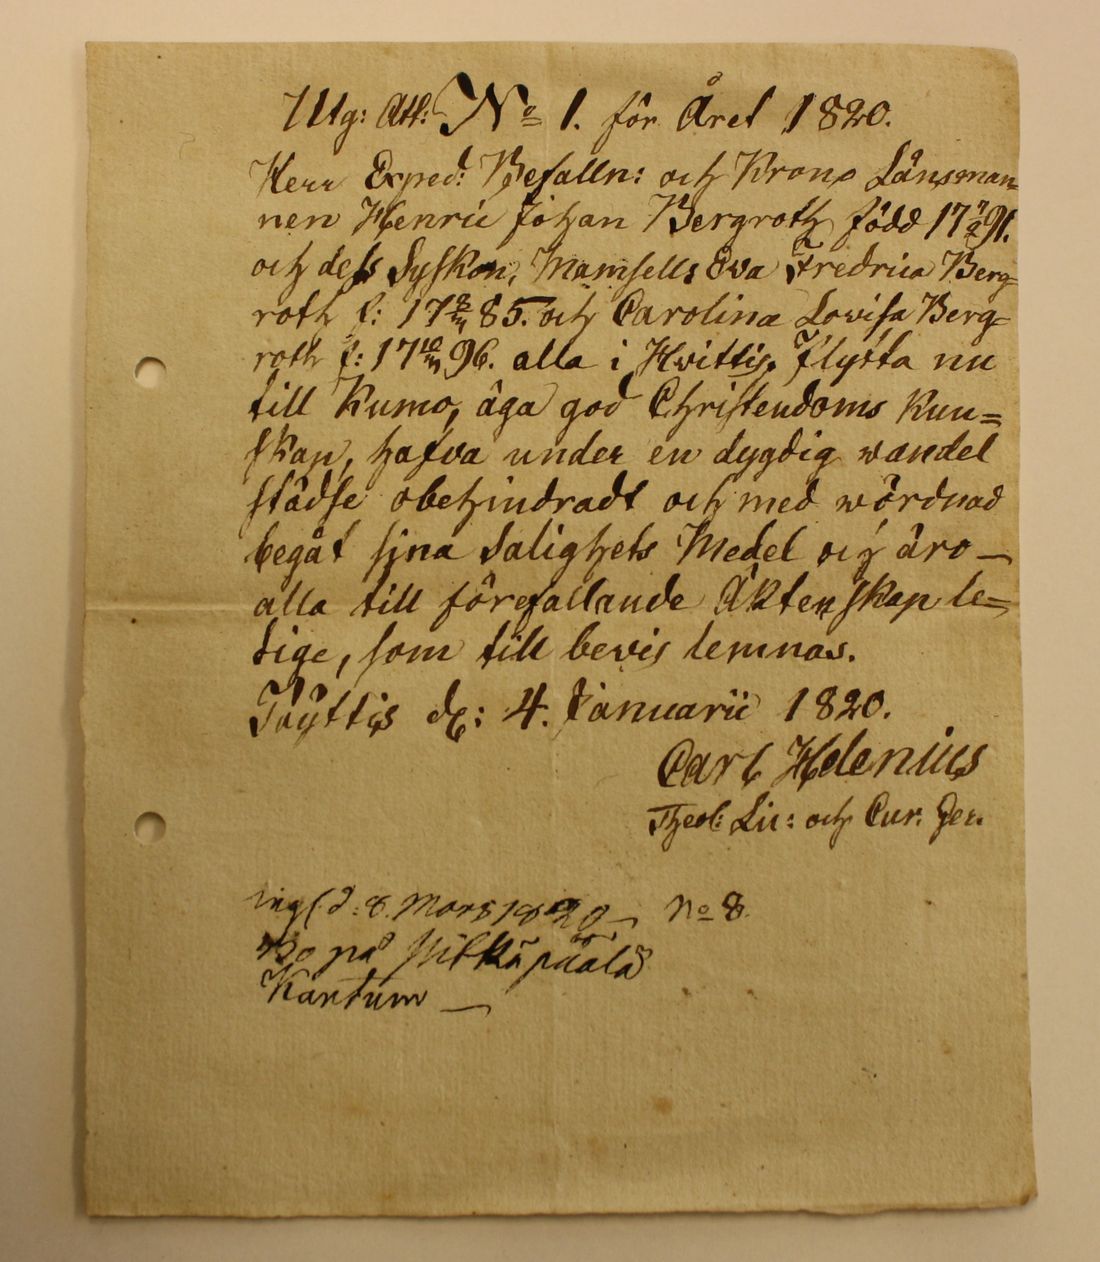 Utg: Att: No 1. för Året 1820.
Herr Exped: Befalln: och Krono Länsman-
nen Henric Johan Bergroth född 17 91.
och dess Syskon, Mamsells Eva Fredrica Berg=
roth f: 17 85. och Carolina Lovisa Berg=
roth f: 17 96. alla i Hvittis, flytta nu
till Kumo, äga god Christendoms Kun=
skap, hafva under en dygdig wandel
städse obehindradt och med wördnad
begåt sina Salighets Medel och äro
alla till förefallande Äktenskap le=
dige, som till bevis lemnas.
d: 4. Januarii 1820.
Carl Helenius
Theol: Lic: och Cur. Ger.
d: 8. Mars 1820 No 8
Bo på